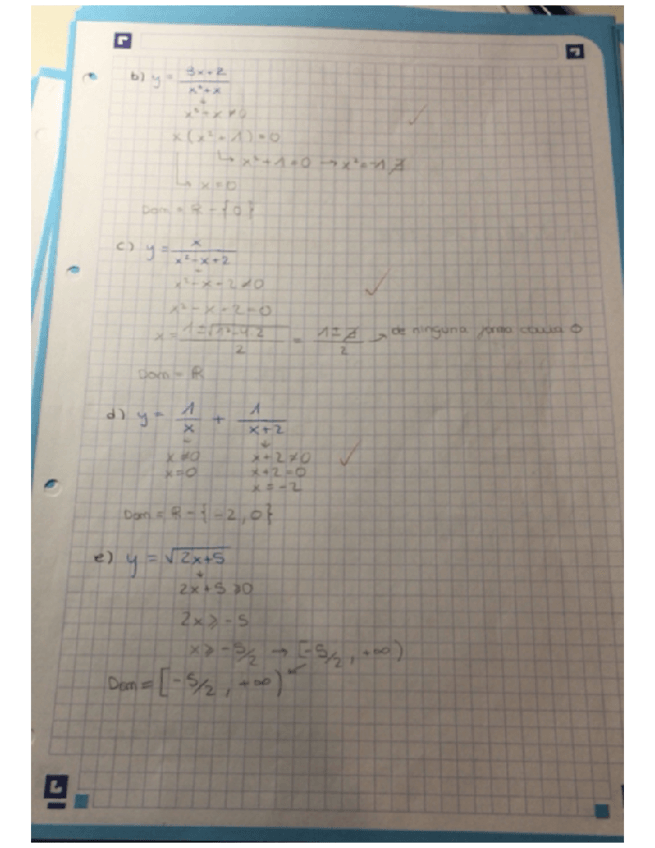 b) y = 3x+2 / x³+x
x³+x ≠ 0
x(x²+1)=0
↳ x²+1=0 → x²=-1 ∄
↳ x=0
Dom = R - {0}
c) y = x / x²-x+2
x²-x+2≠0
x²-x+2=0
x = 1±√1²-4·2 / 2 = 1±∄ / 2 → de ninguna
Dom = R
d) y = 1/x + 1/x+2
x≠0 x+2≠0
x=0 x+2=0
x=-2
Dom = R - {-2, 0}
e) y = √2x+5
2x+5≥0
2x≥-5
x≥-5/2 → [-5/2, +∞)
Dom = [-5/2, +∞)